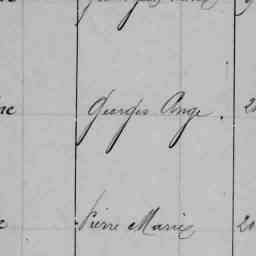 Georges Ange. 2
Pierre Marie 20